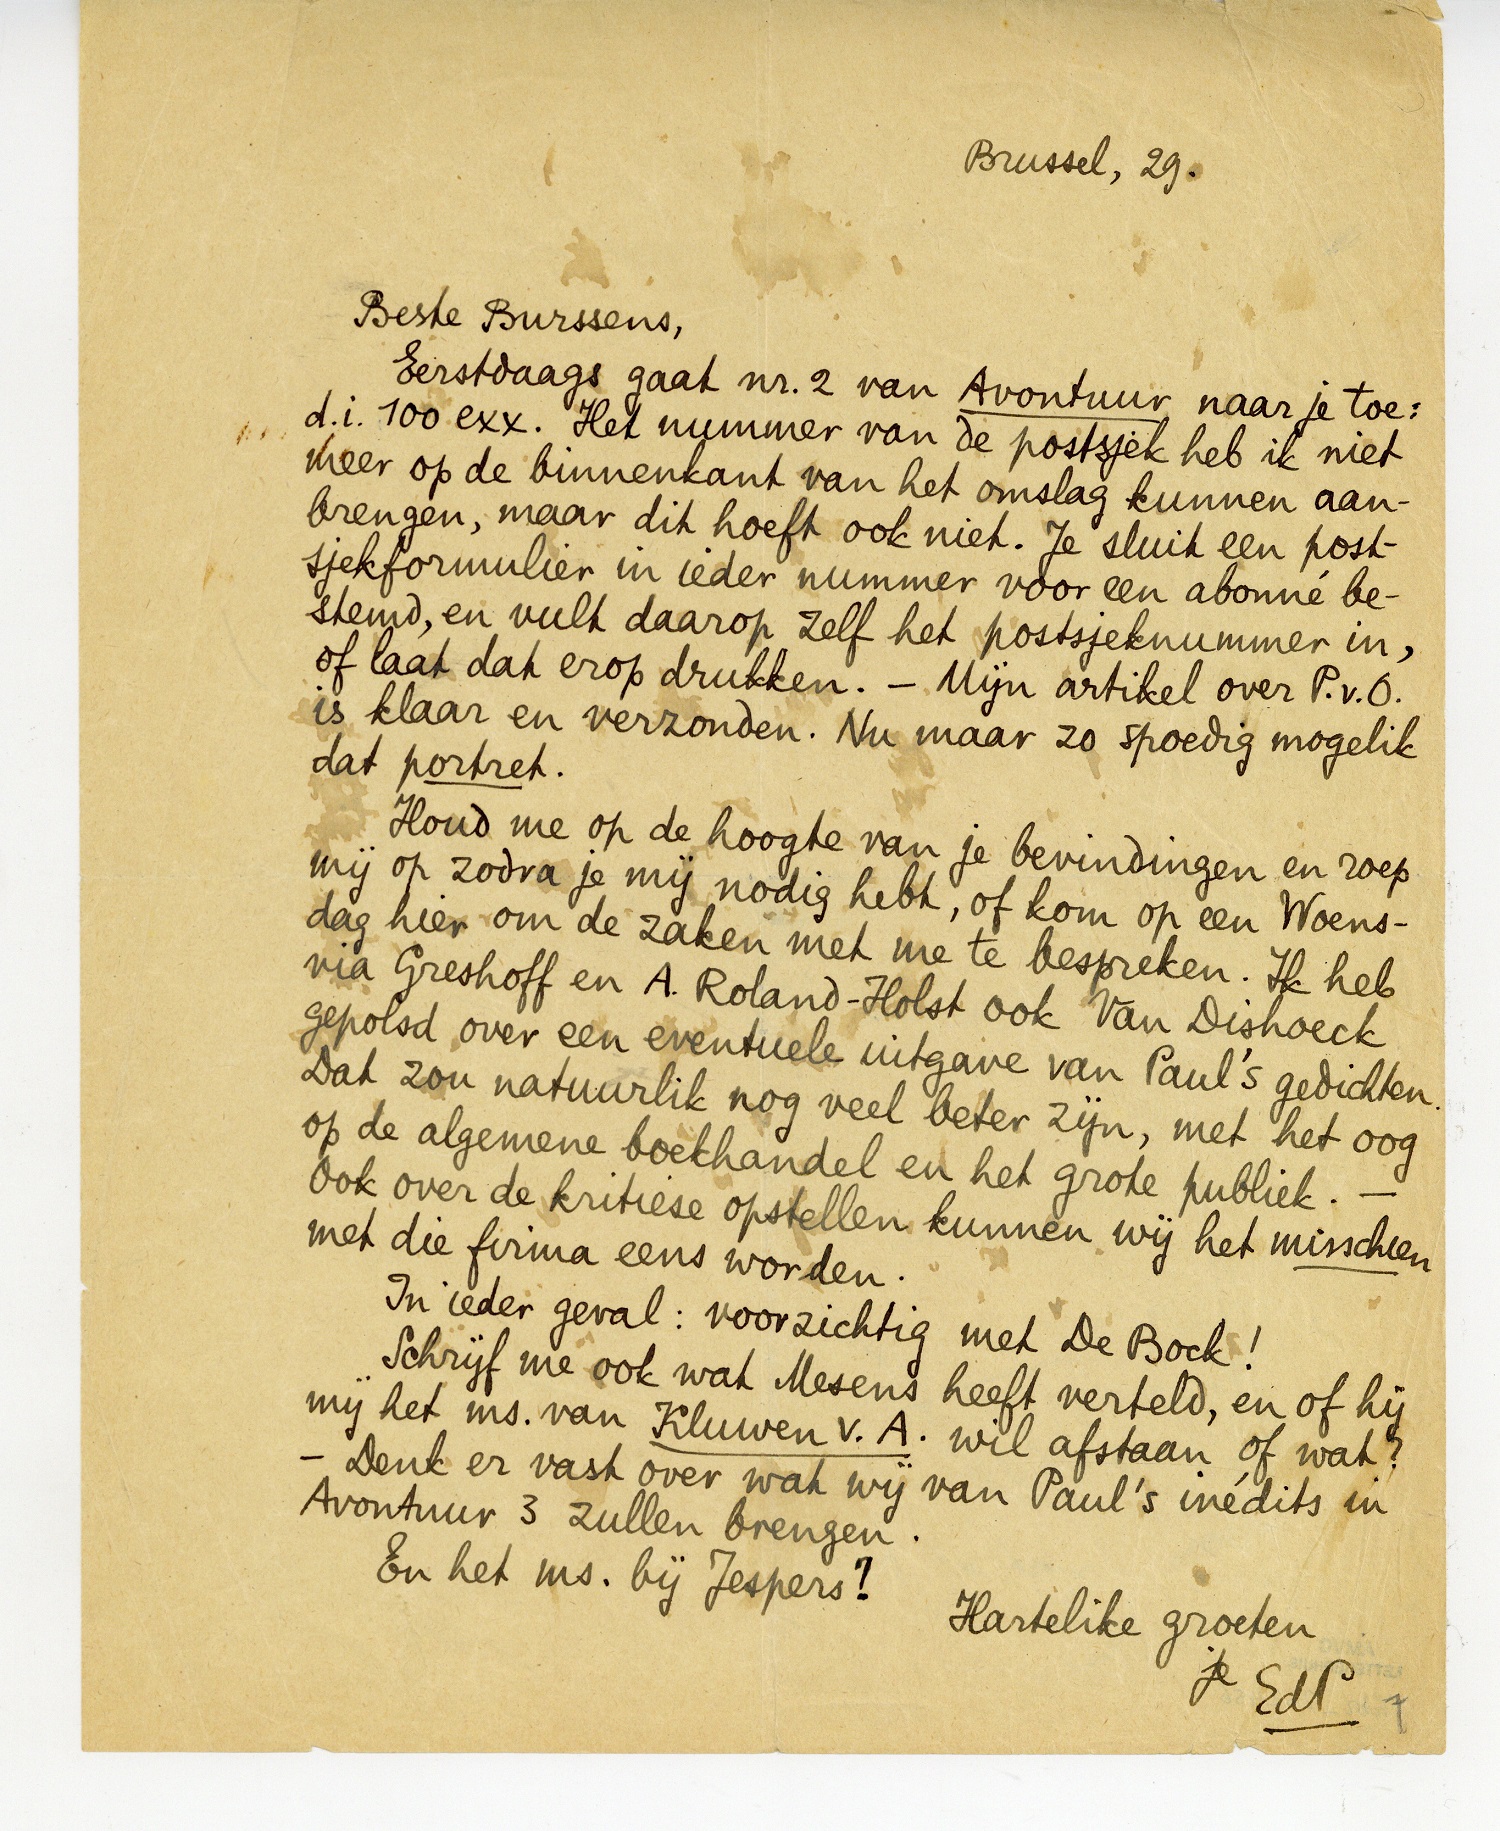 Brussel, 29.
Beste Burssens,
Eerstdaags gaat nr. 2 van Avontuur naar je toe:
d.i. 100 exx. Het nummer van de postsjek heb ik niet
meer op de binnenkant van het omslag kunnen aan-
brengen, maar dit hoeft ook niet. Je sluit een post-
sjekformulier in ieder nummer voor een abonné be-
stemd, en vult daarop zelf het postsjeknummer in,
of laat dat erop drukken. — Mijn artikel over P.v.O.
is klaar en verzonden. Nu maar zo spoedig mogelik
dat portret.
Houd me op de hoogte van je bevindingen en roep
mij op zodra je mij nodig hebt, of kom op een Woens-
dag hier om de zaken met me te bespreken. Ik heb
via Greshoff en A. Roland-Holst ook Van Dishoeck
gepolsd over een eventuele uitgave van Paul's gedichten.
Dat zou natuurlik nog veel beter zijn, met het oog
op de algemene boekhandel en het grote publiek. —
Ook over de kritiese opstellen kunnen wij het misschien
met die firma eens worden.
In ieder geval: voorzichtig met De Bock!
Schrijf me ook wat Mesens heeft verteld, en of hij
mij het ms. van Kluwen v. A. wil afstaan of wat?
— Denk er vast over wat wij van Paul's inédits in
Avontuur 3 zullen brengen.
En het ms. bij Jespers?
Hartelike groeten
je EdP